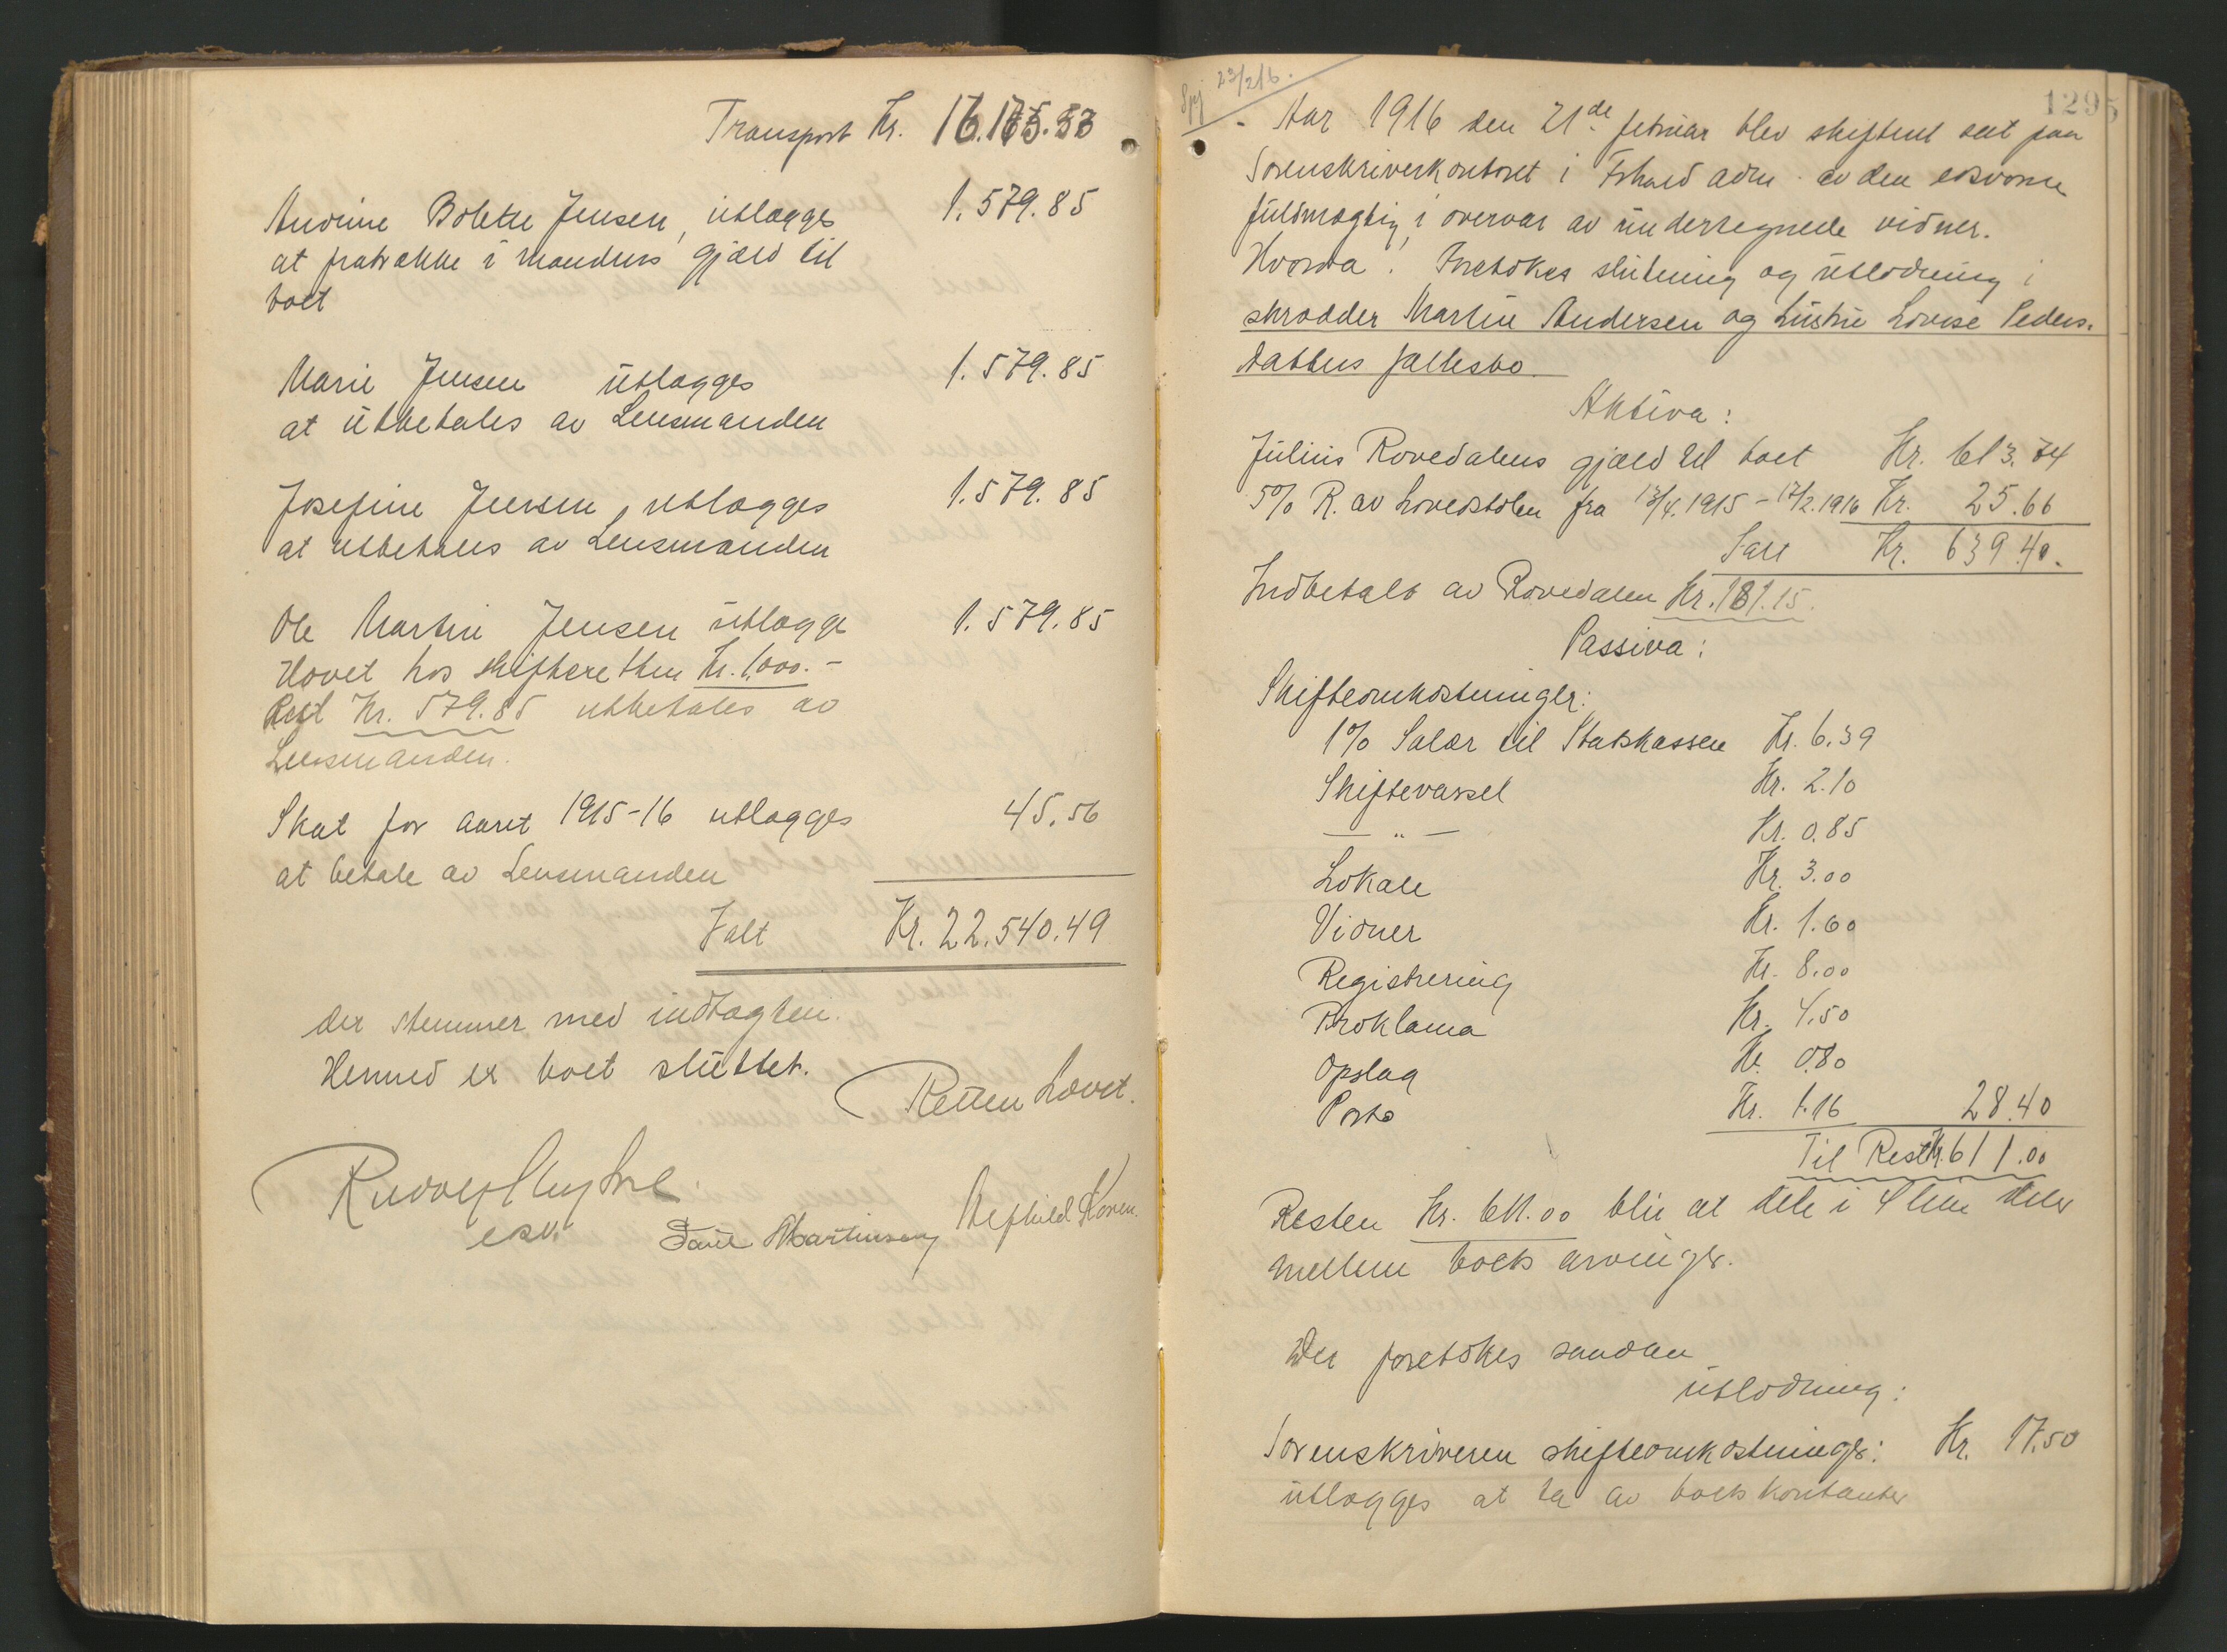 Transport Kr. 16.175.53
Andrine Bolette Jensen, utlægges 1.579.85
at fratrække i mandens gjæld til
boet
Marie Jensen utlægges 1.579.85
at utbetales av Lensmanden
Josefine Jensen, utlægges 1.579.85
at utbetales av Lensmanden
Ole Martin Jensen utlægges 1.579.85
Hovet hos skifteretten Kr. 1.000.-
Rest Kr. 579.85 utbetales av
Lensmanden.
Skat for aaret 1915-16 utlægges 45.56
at betale av Lensmanden
Ialt Kr. 22.540.49
der stemmer med indtægten.
Hermed er boet sluttet.
Retten hævet.
esv. Paul Martinsen
1295
23/2 16.
Aar 1916 den 21de februar blev skifteret sat paa
Sorenskriverkontoret i Frhald adm. av den edsvorne
fuldmægtig, i overvær av undertegnede vidner.
Hvorda: Foretokes slutning og utlodning i
skrædder Martin Andersen og hustru Lovise Peders-
datters fællesbo
Aktiva:
Julius Rovedalens gjæld til boet Kr. 613.74
5% R. av hovedstolen fra 17/4.1915 - 17/2.1916 Kr. 25.66
Ialt Kr. 639.40.
Indbetalt av Rovedalen Kr. 181.15.
Passiva:
Skifteomkostninger:
1% Salær til Statskassen Kr. 6.39
Skiftevarsel Kr. 2.10
— " — Kr. 0.85
Lokale Kr. 3.00
Vidner Kr. 1.60
Registrering Kr. 8.00
Proklama Kr. 4.50
Opslag Kr. 0.80
Porto Kr. 1.16 28.40
Til Rest Kr. 611.00
Resten Kr. 611.00 blir at dele i like dele
mellem boets arvinger.
Der foretokes saadan
utlodning:
Sorenskriveren skifteomkostninger: Kr. 17.50
utlægges at ta av boets kontanter